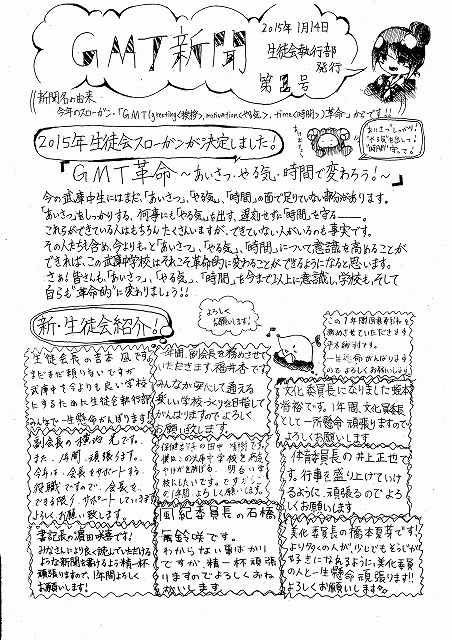 GMT新聞
2015年1月14日
生徒会執行部
発行
第1号
新聞名の由来
今年のスローガン・「GMT(greeting<挨拶>,motivation<やる気>,time<時間>)革命」からです!!
あいさつしっかり!
やる気を出して!
時間守って!
2015年生徒会スローガンが決定しました!
『GMT革命 ~あいさつ・やる気・時間で変わろう!~』
今の武庫中生にはまだ、「あいさつ」、「やる気」、「時間」の面で足りていない部分があります。
「あいさつ」をしっかりする、何事にも「やる気」を出す、遅刻せずに「時間」を守る――。
これらができている人はもちろんたくさんいますが、できていない人がいるのも事実です。
その人たちも含め、今よりもっと「あいさつ」、「やる気」、「時間」について意識を高めることが
できれば、この武庫中学校はそれこそ革命的に変わることができるようになると思います。
さぁ!皆さんも、「あいさつ」、「やる気」、「時間」を今まで以上に意識し、学校も、そして
自らも"革命的"に変わりましょう!!
新・生徒会紹介!
よろしく
お願いします!
生徒会長の吉本 凪です。
まだまだ頼りないですが
武庫中を今よりも良い学校
にするために生徒会執行部
みんなで一生懸命がんばります!
一年間、副会長を務めさせて
いただきます、福井杏です。
みんなが安心して通える
楽しい学校づくりを目指して
がんばりますのでよろしく
お願い致します。
この1年間
務めさせていただきます
一生懸命がんばります
のでよろしくお願いします
文化委員長になりました
です。1年間、文化委員長
として一所懸命頑張りますので
よろしくお願いします
副会長の
また、1年間、頑張ります。
今年は、会長をサポートする
役職ですので、会長を
できる限り、サポートしていきます
よろしくお願い致します。
保健委員長の田中
この1年間、よろしくお願いします。
体育委員長の井上正也で
す。行事を盛り上げていけ
るように、頑張るのでよろ
しくお願いします
書記長の濱田咲喜です!
みなさんにより良く読んでいただける
ような新聞を書けるよう精一杯
頑張りますので、1年間よろしく
お願いします!
風紀委員長の石橋
美鈴咲です。
わからない事ばかり
ですが、精一杯頑張
りますのでよろしくおね
がいします。
美化委員長の橋本夏芽です!
より多くの人が、少しでもそうじが
好きになるように、美化委員
の人と一生懸命頑張ります!!
よろしくお願いします